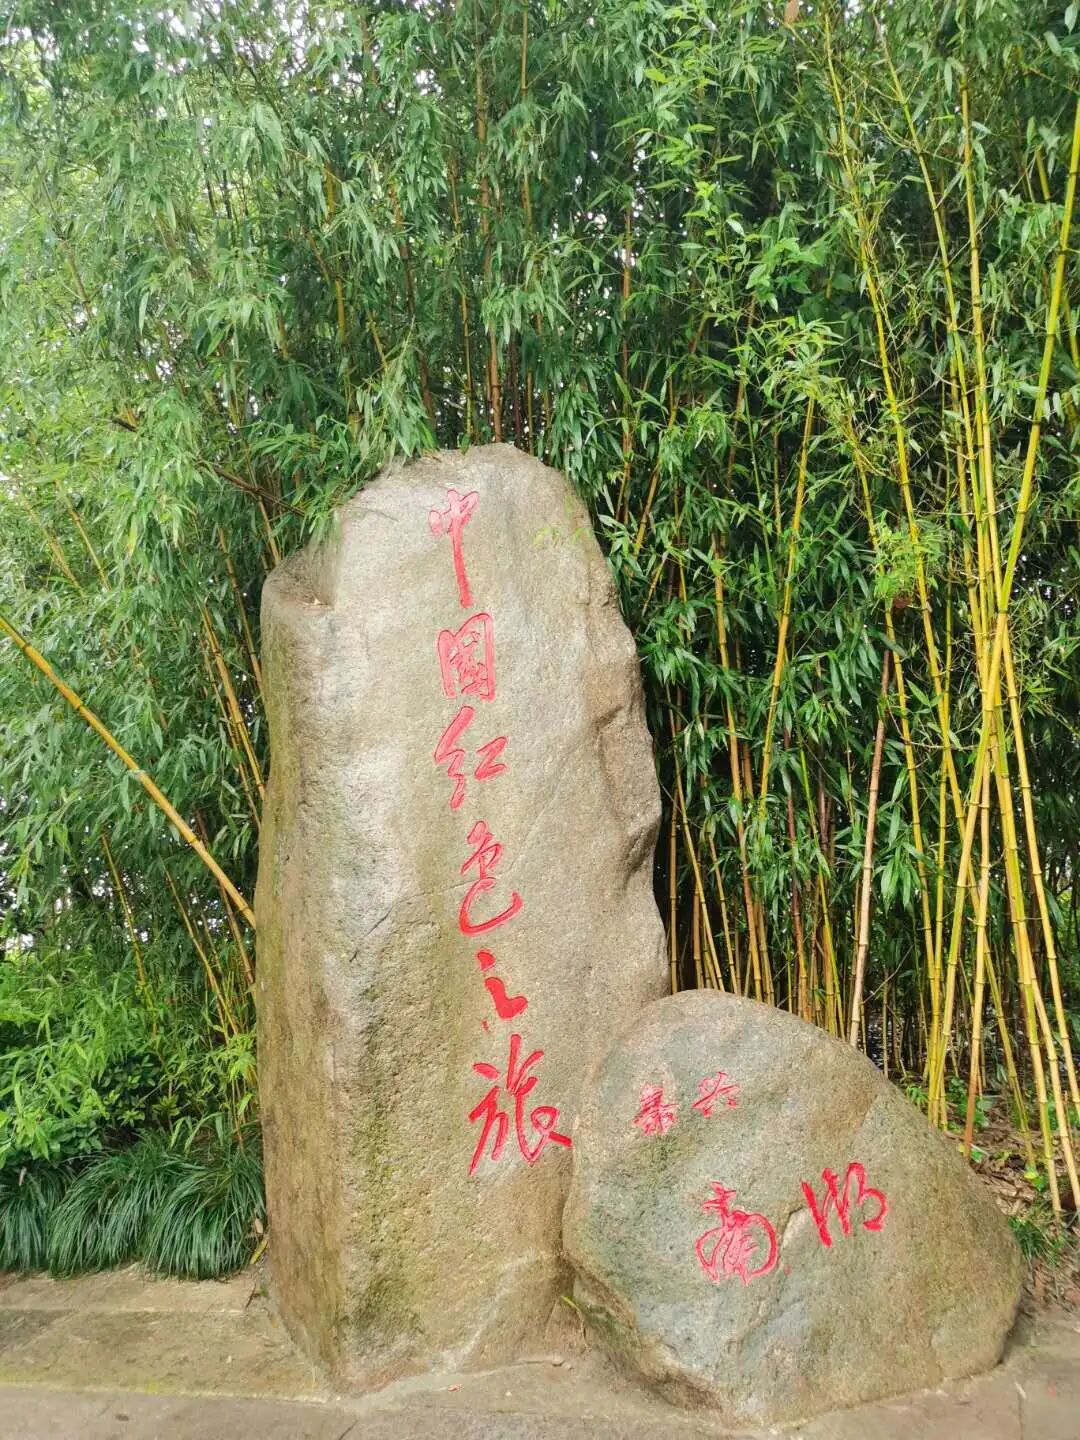 中国红色之旅
嘉兴
南湖